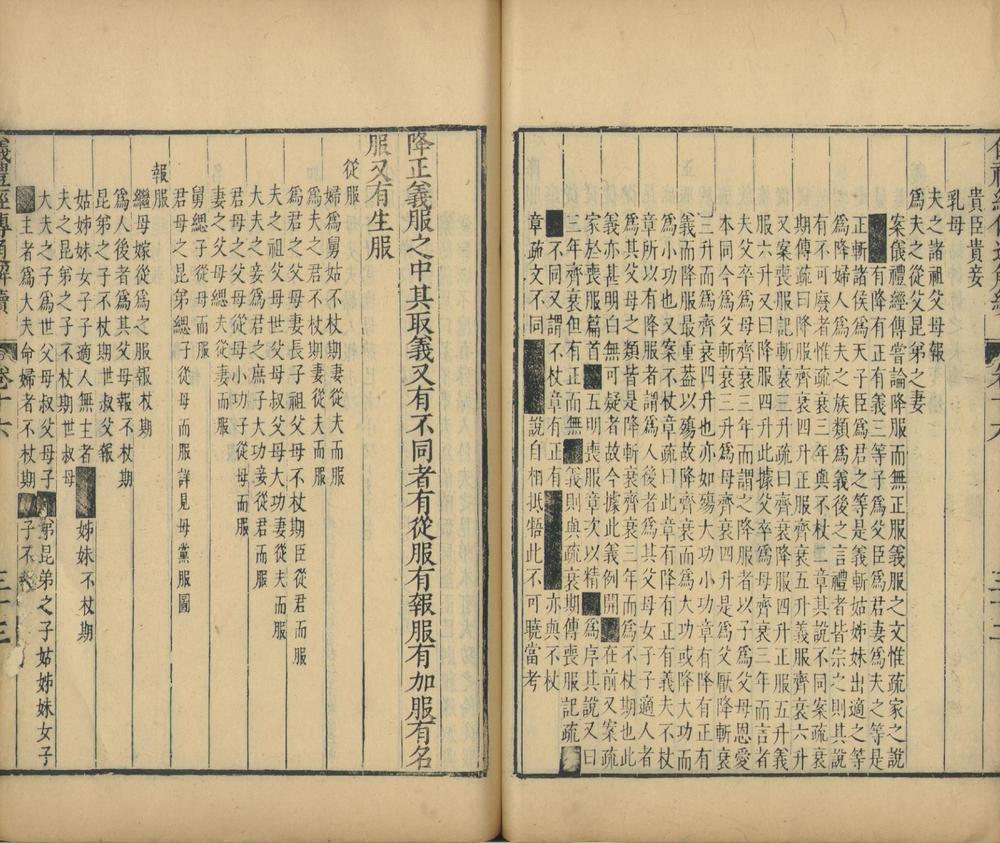 貴臣貴妾
乳母
夫之諸祖父母報
爲夫之從父昆弟之妻
案儀禮經傳嘗論降服而無正服義服之文惟疏家之說
有降有正有義三等子爲父臣爲君妻爲夫之等是
正斬諸侯爲天子臣爲君之等是義斬姑姊妹出適之等
爲降婦人爲夫之族類爲義後之言禮者皆宗之則其說
有不可廢者惟疏衰三年與不杖二章其說不同案疏衰
期傳疏曰降服齊衰四升正服齊衰五升義服齊衰六升
又案喪服記斬衰疏曰齊衰降服四升正服五升義
服六升又曰降服四升此據父卒爲母齊衰三年而言者
夫父卒爲母齊衰三年而謂之降服者子爲父母恩愛
本同今爲父斬衰三升爲母齊衰四升是父厭降斬衰
三升而爲齊衰四升也亦如殤大功小功章有降有正有
義而降服最重蓋以殤故降齊衰而爲大功或降大功而
爲小功也又案不杖章疏曰此章有降有正有義夫不杖
章所以有降服者謂爲人後者爲其父母女子子適人者
爲其父母之類皆是降斬衰齊衰三年而爲不杖期也此
義亦甚明白無可疑者故今據此義例開在前又案疏
家於喪服篇首五明喪服章次以精爲序其說又曰
三年齊衰但有正而無義則與疏衰期傳喪服記疏
不同又謂不杖章有正有亦與不杖
章疏文不同說自相抵牾此不可曉當考
降正義服之中其取義又有不同者有從服有報服有加服有名
服又有生服
從服
婦爲舅姑不杖期妻從夫而服
爲夫之君不杖期妻從夫而服
爲君之父母妻長子祖父母不杖期臣從君而服
夫之祖父母世父母叔父母大功妻從夫而服
大夫之妾爲君之庶子大功妾從君而服
君母之父母從母小功子從母而服
妻之父母緦夫從妻而服
舅緦子從母而服
君母之昆弟緦子從母而服詳見母黨服圖
報服
繼母嫁從爲之服報杖期
爲人後者爲其父母報不杖期
昆弟之子不杖期世叔父報
姑姊妹女子子適人無主者姊妹不杖期
夫之昆弟之子不杖期世叔母
大夫之子爲世父母叔父母子弟昆弟之子姑姊妹女子
主者爲大夫命婦者不杖期子不報
儀禮經傳通解續
卷十六
三十三